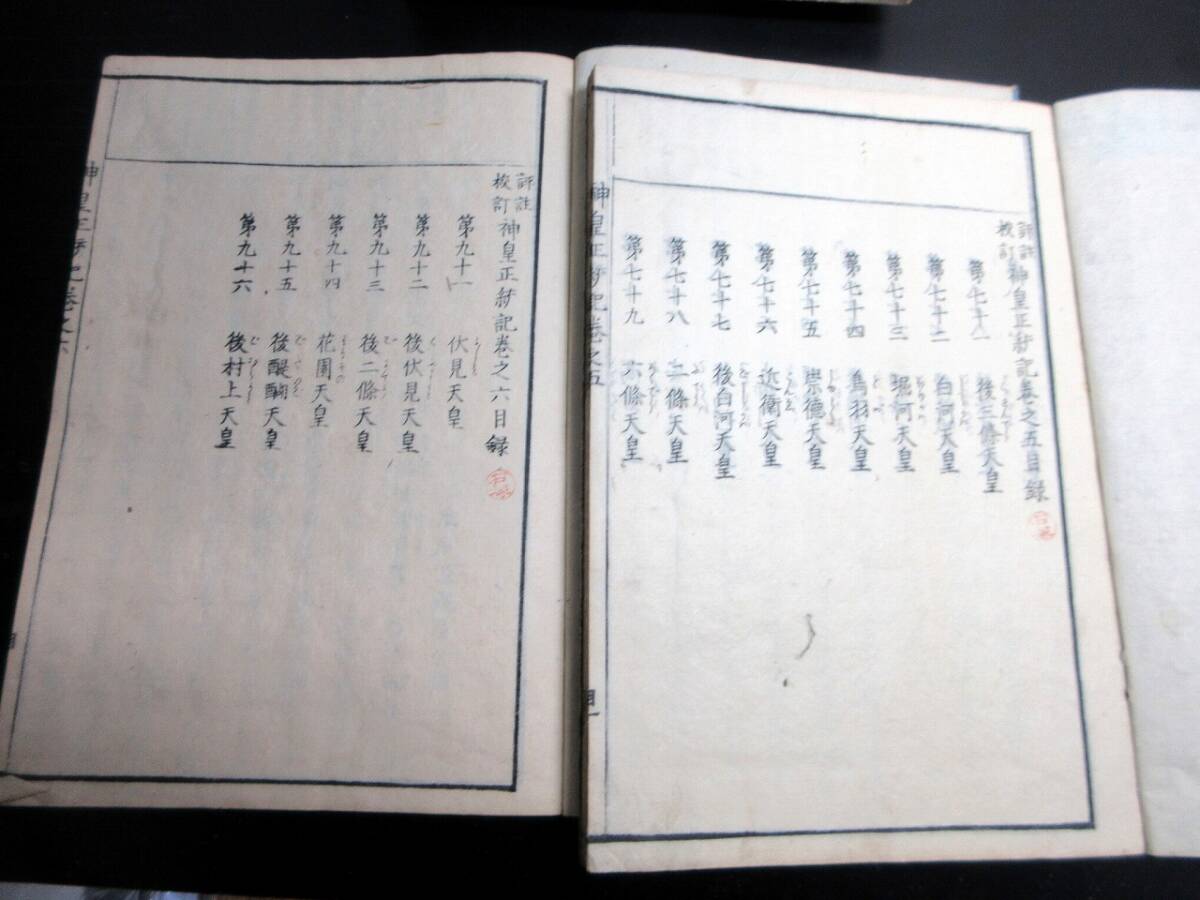 評註校訂神皇正統記卷之五目録
第七十一 後三條天皇
第七十二 白河天皇
第七十三 堀河天皇
第七十四 鳥羽天皇
第七十五 崇德天皇
第七十六 近衞天皇
第七十七 後白河天皇
第七十八 二條天皇
第七十九 六條天皇
神皇正統記卷之五
目一
評註校訂神皇正統記卷之六目録
第九十一 伏見天皇
第九十二 後伏見天皇
第九十三 後二條天皇
第九十四 花園天皇
第九十五 後醍醐天皇
第九十六 後村上天皇
神皇正統記卷之六